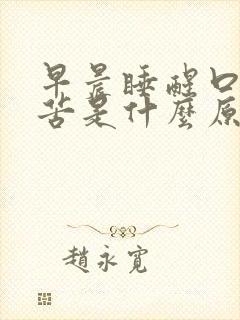 早晨睡醒口
苦是什麼原
趙永寬